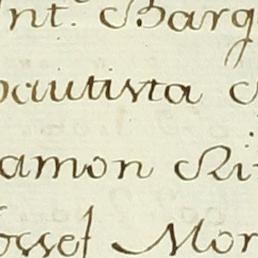 nt. Barq
bautista
amon Ri
ossef Mor